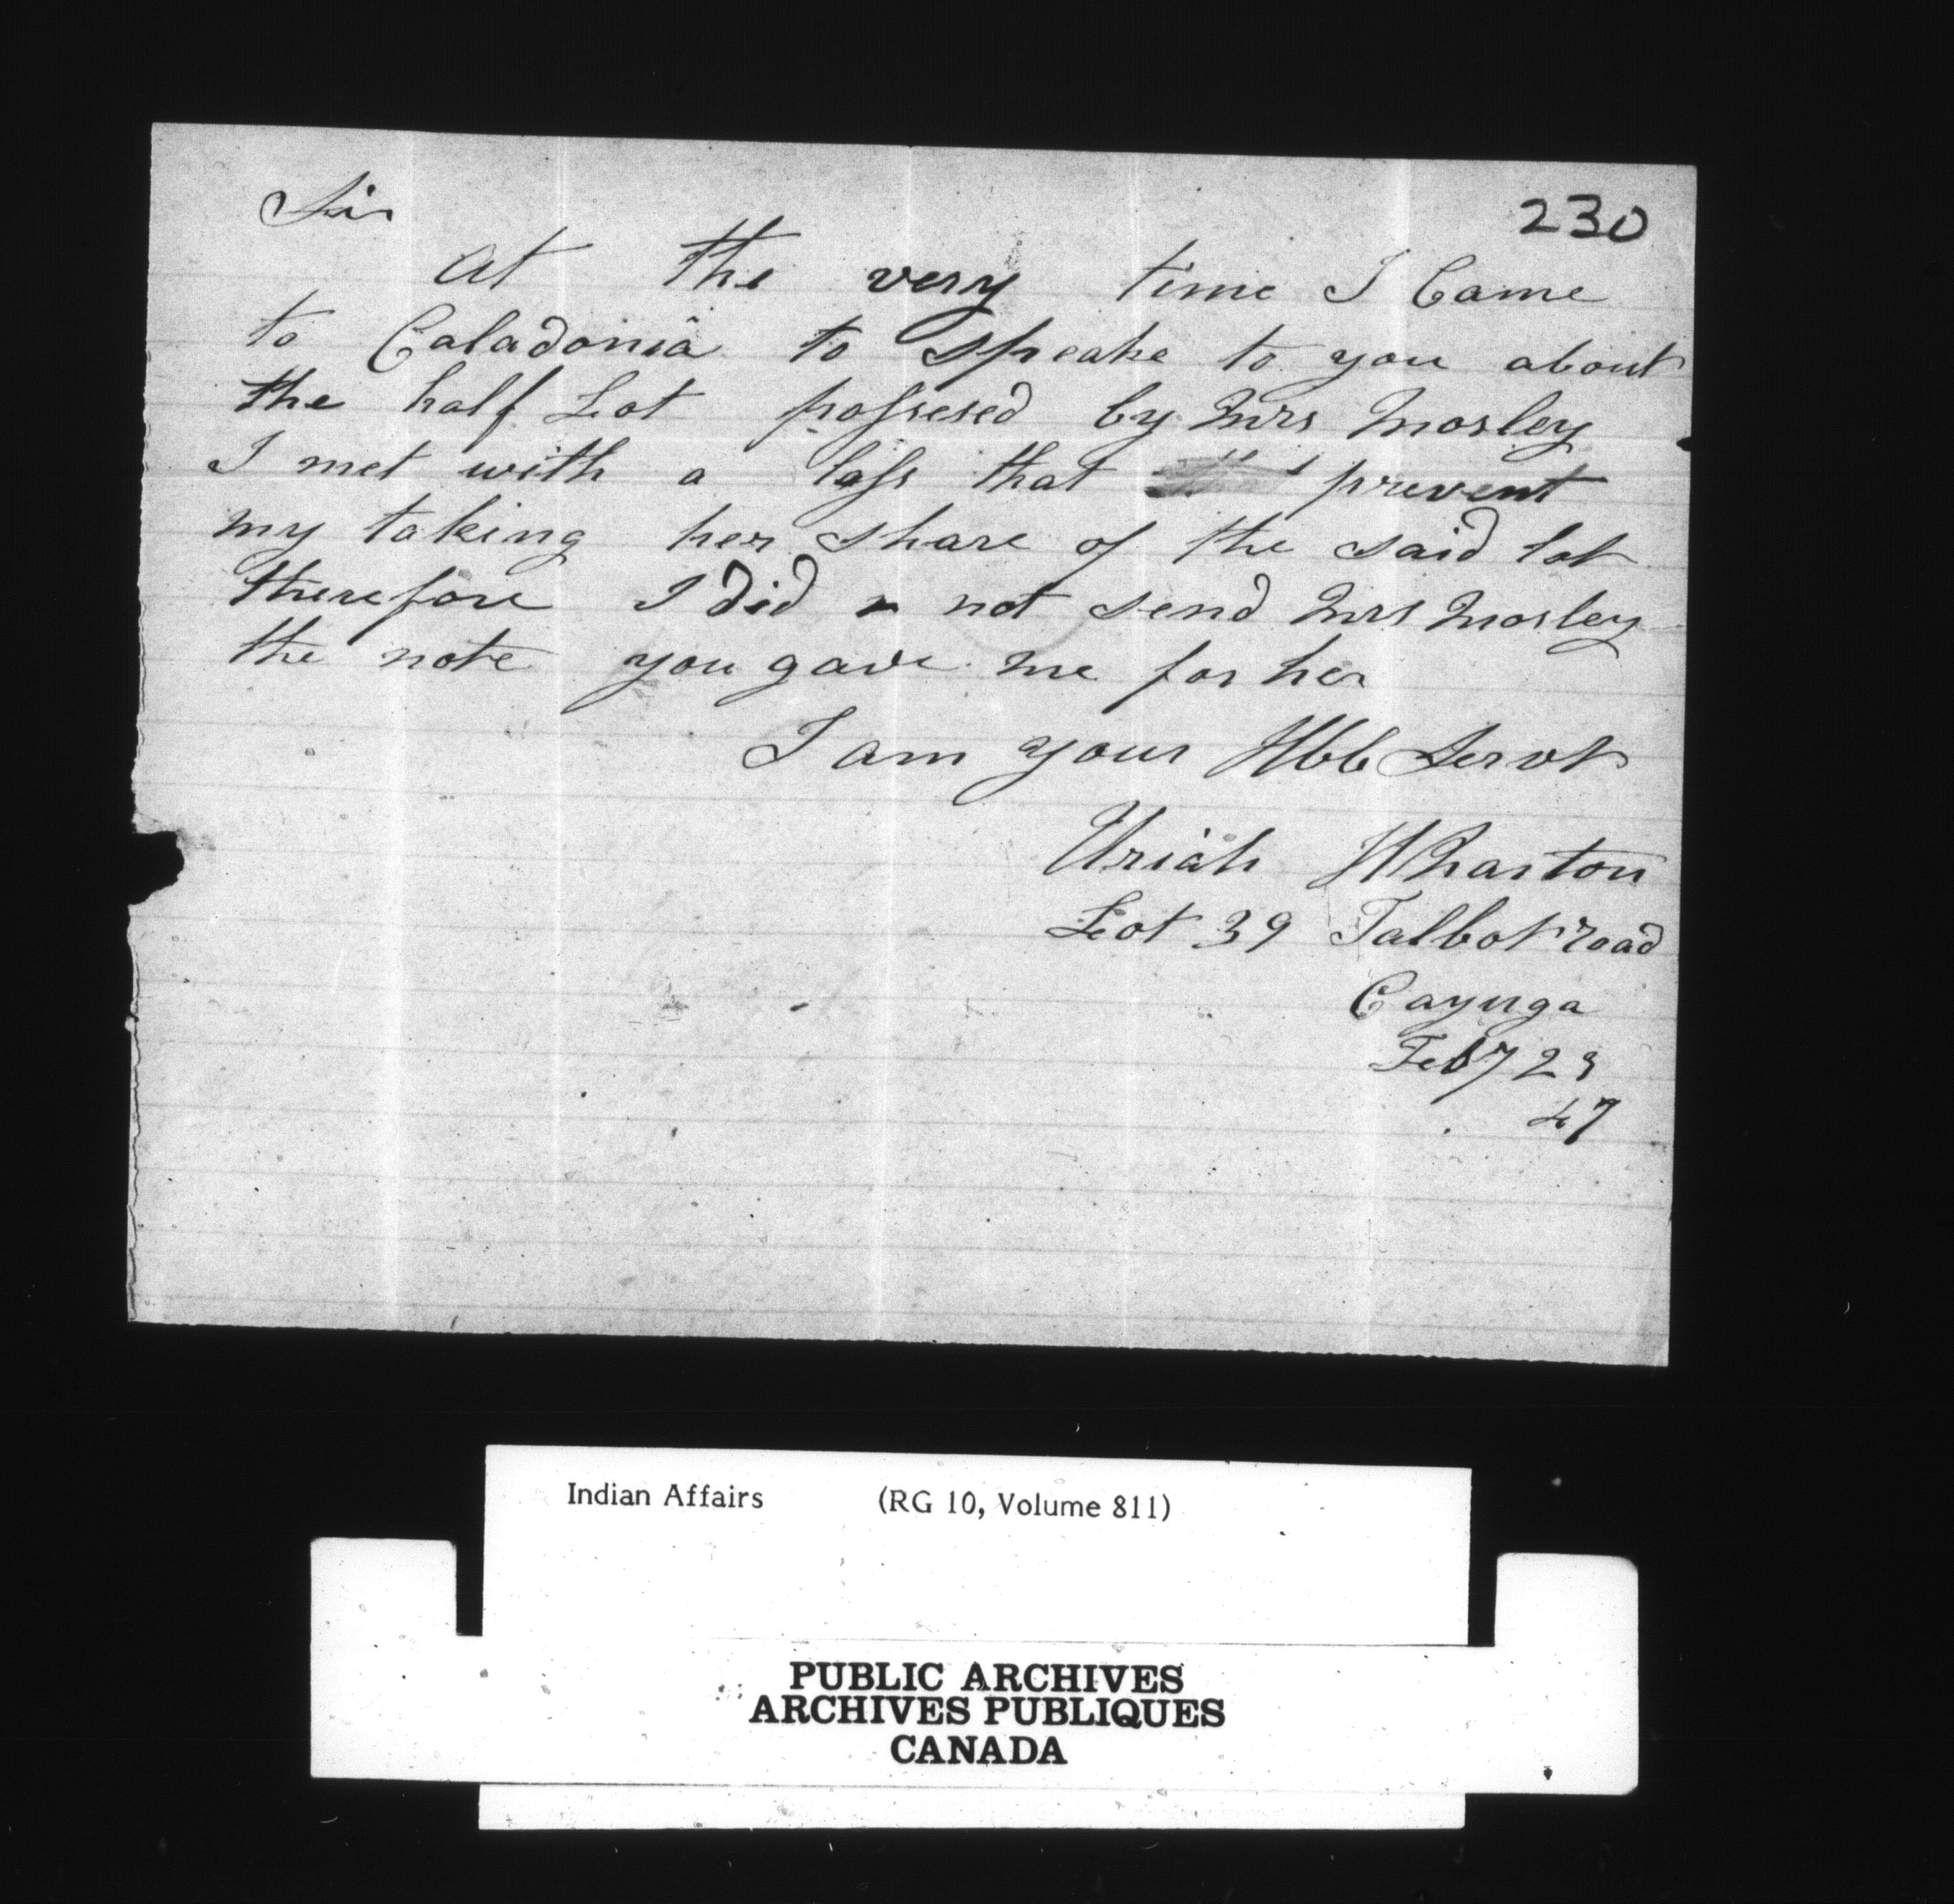 230
Sir
At the very time I Came
to Caladonia to speake to you about
the half Lot possesed by Mrs Mosley
I met with a loss that prevent
my taking her share of the said lot
therefore I did not send Mrs Mosley
the note you gave me for her
I am your Hbl Servt
Uriah Wharton
Lot 39 Talbot road
Cayuga
Feby 23
47
Indian Affairs (RG 10, Volume 811)
PUBLIC ARCHIVES
ARCHIVES PUBLIQUES
CANADA